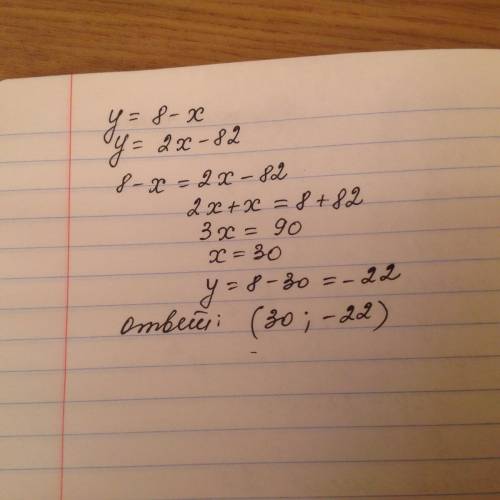 y = 8 - x
y = 2x - 82
8 - x = 2x - 82
2x + x = 8 + 82
3x = 90
x = 30
y = 8 - 30 = - 22
ответ: (30 ; -22)